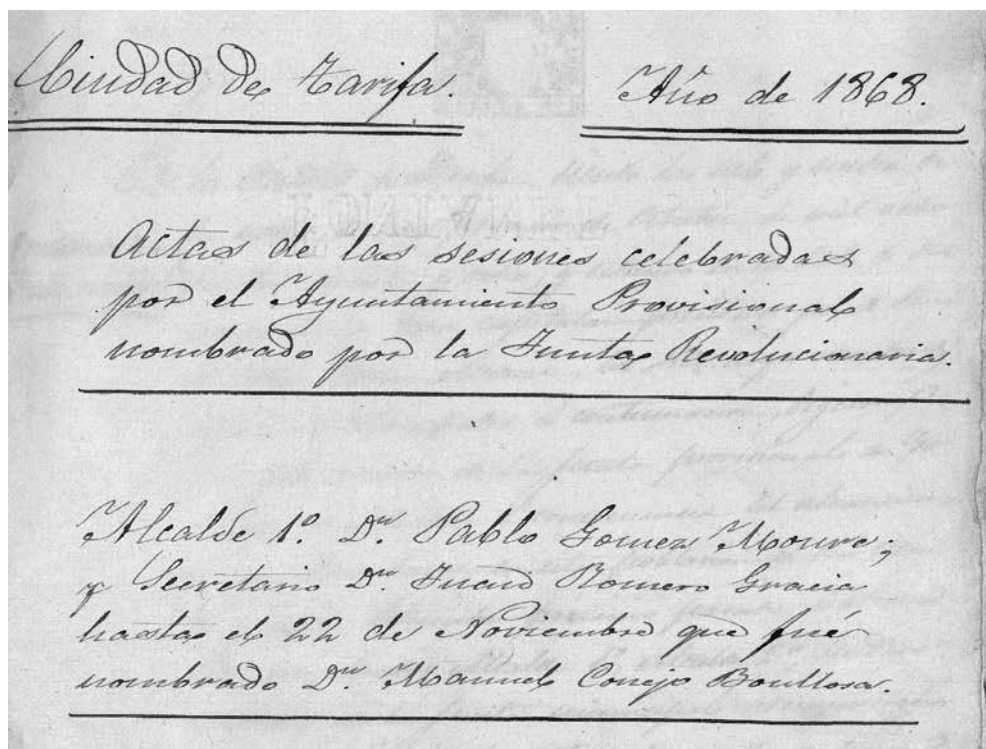 Ciudad de Tarifa. Año de 1868.
Actas de las sesiones celebradas
por el Ayuntamiento Provisional
nombrado por la Junta Revolucionaria.
Alcalde 1º. Dn. Pablo Gomez Moure;
y Secretario Dn. Juan Romero Gracia
hasta el 22 de Noviembre que fué
nombrado Dn. Manuel Conejo Boullosa.